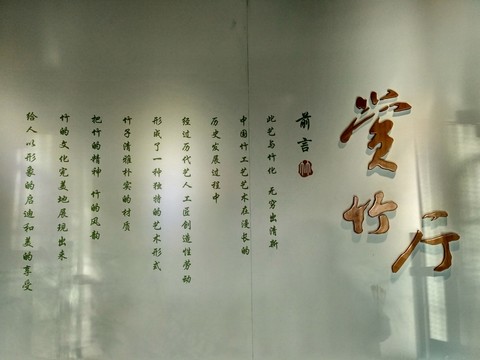 赏竹厅
前言
此艺与竹化 无穷出清新
中国竹工艺艺术在漫长的
历史发展过程中
经过历代艺人工匠创造性劳动
形成了一种独特的艺术形式
竹子清雅朴实的材质
把竹的精神 竹的风韵
竹的文化完美地展现出来
给人以形象的启迪和美的享受